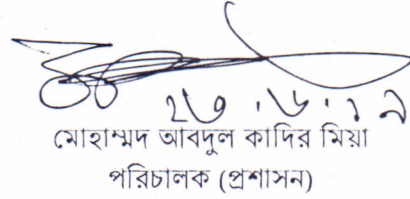 মোহাম্মদ আবদুল কাদির মিয়া
পরিচালক (প্রশাসন)